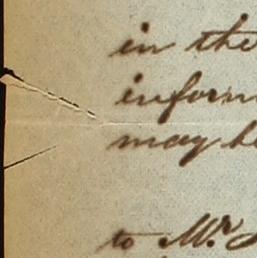 in the
inform
may be
to Mr.